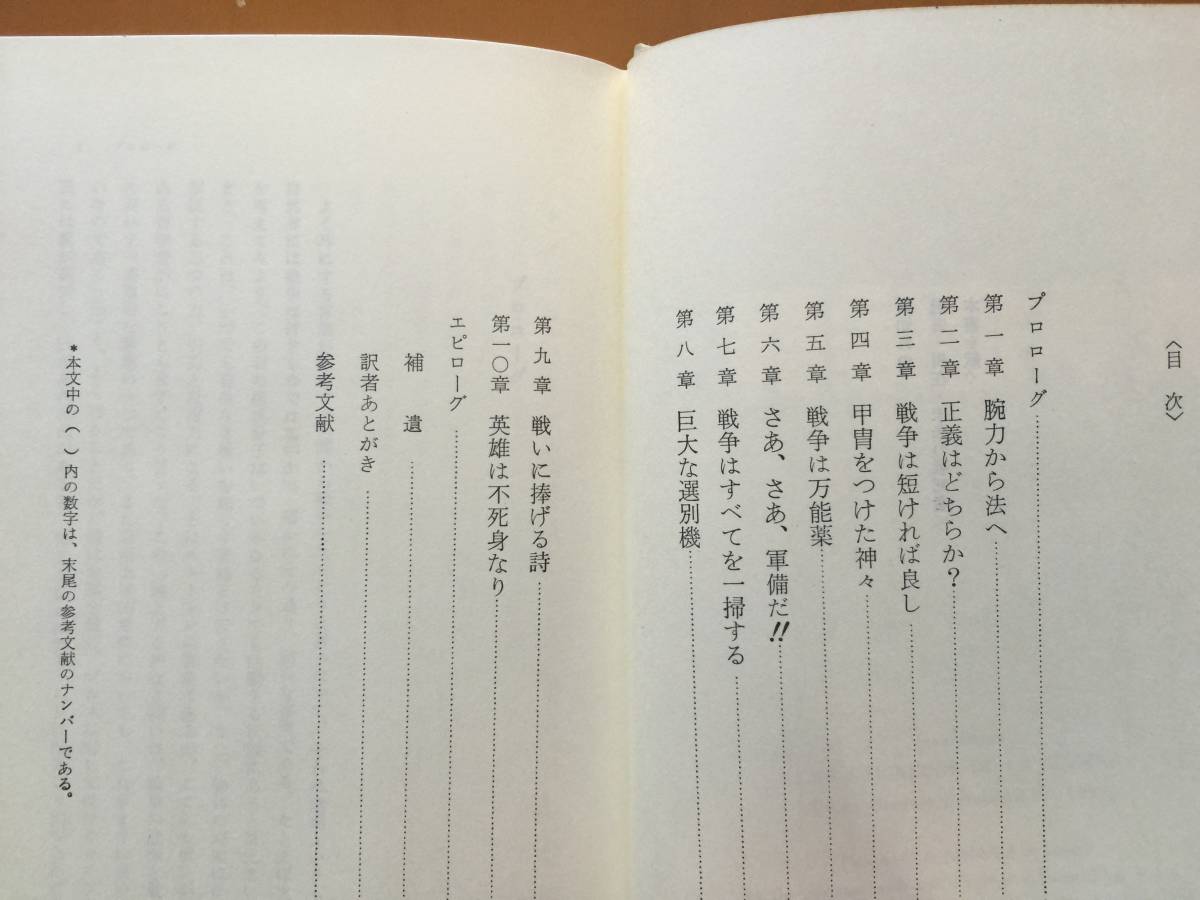 〈目次〉
プロローグ
第一章 腕力から法へ
第二章 正義はどちらか？
第三章 戦争は短ければ良し
第四章 甲冑をつけた神々
第五章 戦争は万能薬
第六章 さあ、さあ、軍備だ!!
第七章 戦争はすべてを一掃する
第八章 巨大な選別機
第九章 戦いに捧げる詩
第一〇章 英雄は不死身なり
エピローグ
補遺
訳者あとがき
参考文献
＊本文中の（ ）内の数字は、末尾の参考文献のナンバーである。